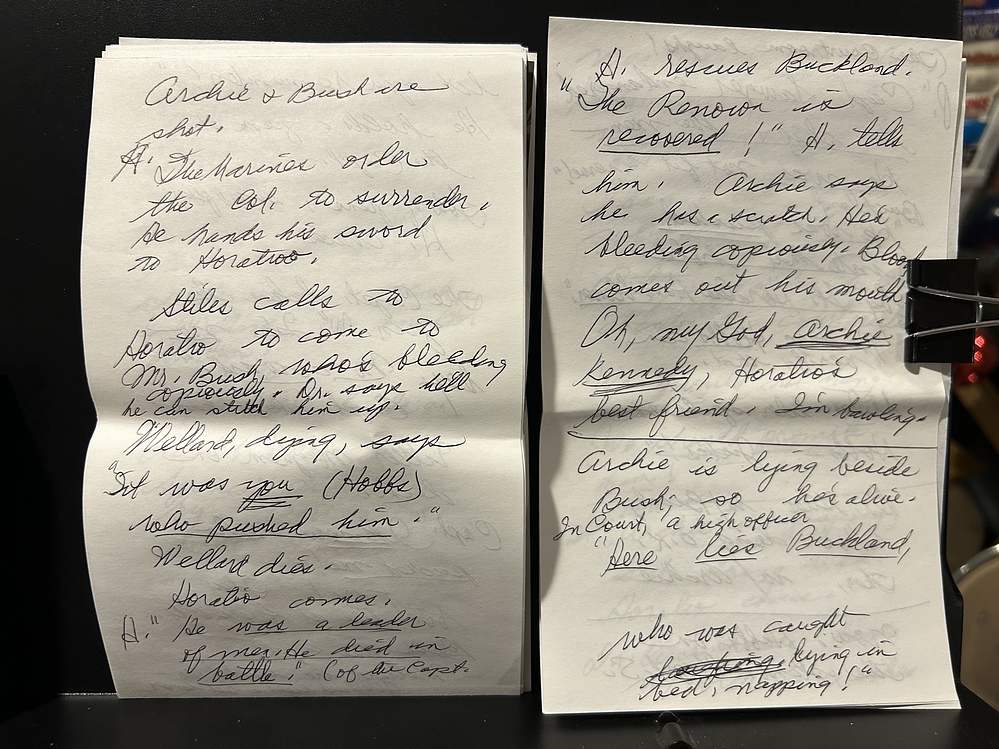 Archie & Bush are
shot.
H. The Marines order
the Col. to surrender.
He hands his sword
to Horatio.
Stiles calls to
Horatio to come to
Mr. Bush, who's bleeding
copiously. Dr. says he'll
he can stitch him up.
Wellard, dying, says
"It was you (Hobbs)
who pushed him."
Wellard dies.
Horatio comes.
H. "He was a leader
of men. He died in
battle." (of the Capt.
H. rescues Buckland.
"The Renown is
recovered!" H. tells
him. Archie says
he has a scratch. He's
bleeding copiously. Blood
comes out his mouth
Oh, my God, Archie
Kennedy, Horatio's
best friend. I'm bawling.
Archie is lying beside
Bush, so he's alive.
In Court, a high officer
"Here lies Buckland,
who was caught
lying in
bed, napping!"